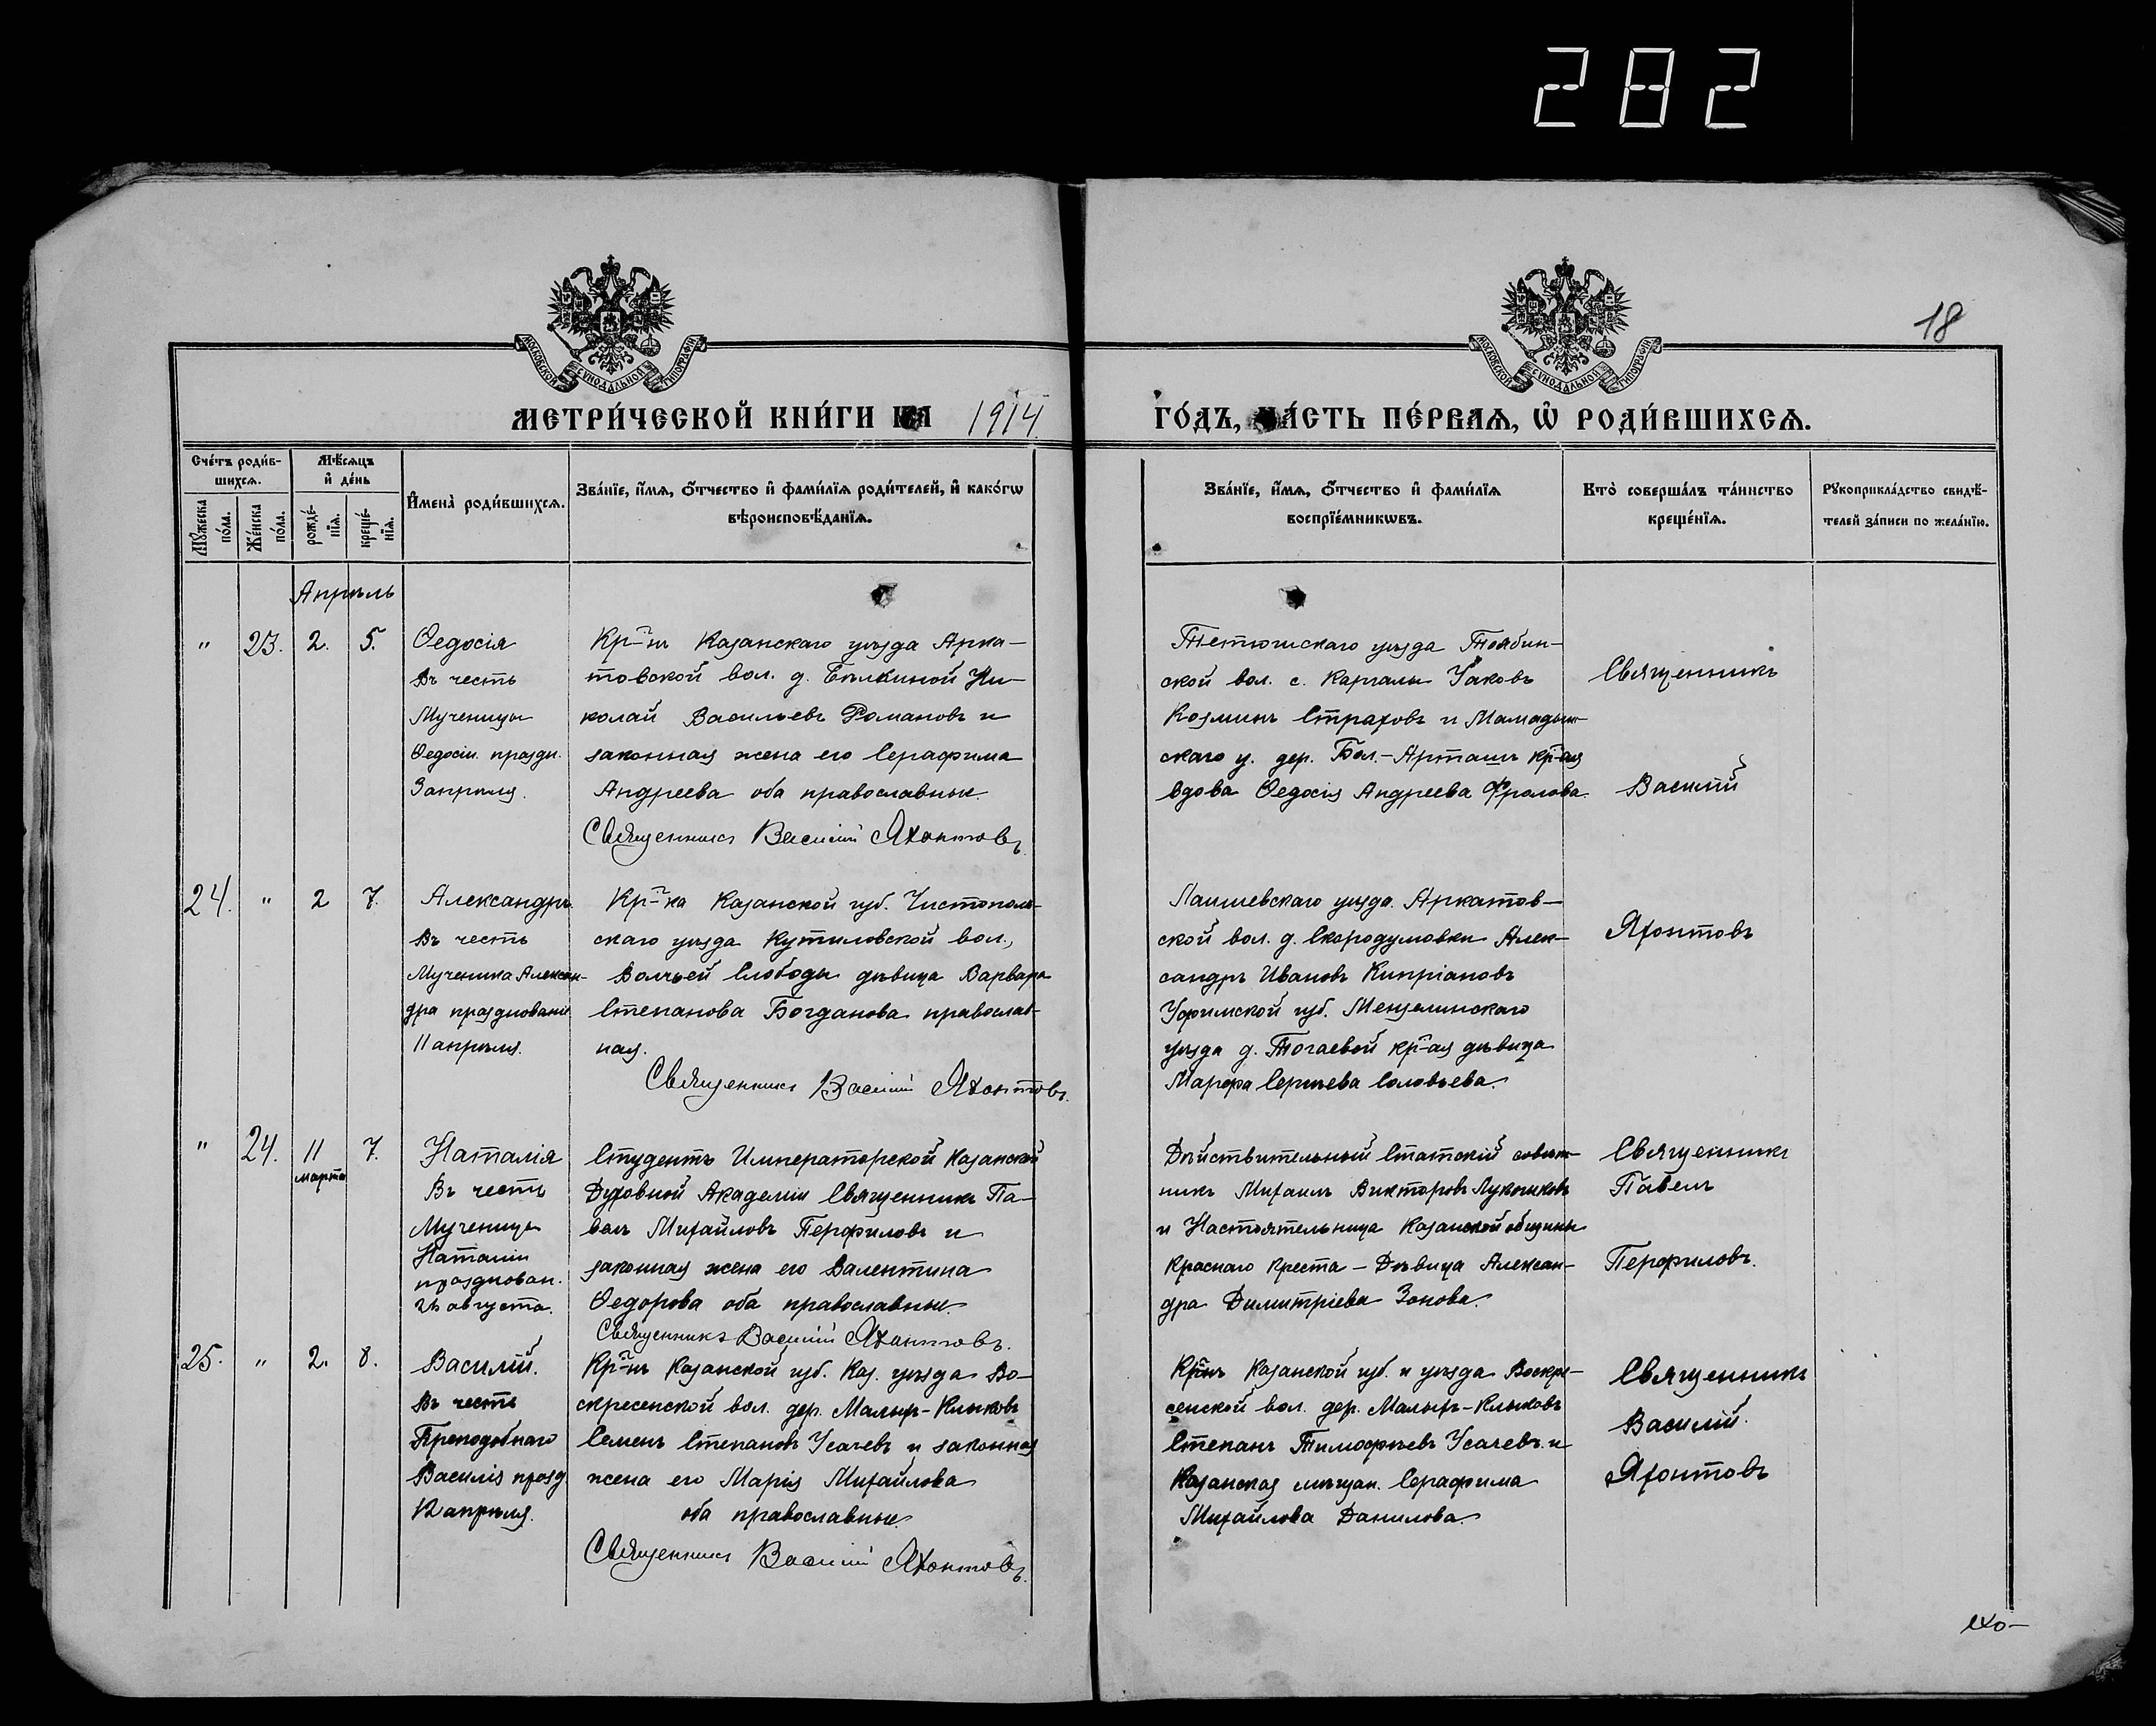 282
18
МОСКОВСКОЙ СѴНОДАЛЬНОЙ ТИПОГРАФІИ
МОСКОВСКОЙ СѴНОДАЛЬНОЙ ТИПОГРАФІИ
МЕТРИ́ЧЕСКОЙ КНИ́ГИ НА 1914 ГО́ДЪ, ЧА́СТЬ ПЕ́РВАѦ, Ѡ҆ РОДИ́ВШИХСѦ.
Сче́тъ роди́в-
шихсѧ.
Мꙋ́жеска по́ла.
Же́нска по́ла.
Мѣ́сѧцъ
и҆ де́нь
рожде́-
нїѧ.
креще́-
нїѧ.
И҆мена̀ роди́вшихсѧ.
Зва́нїе, и҆́мѧ, ѻ҆́тчество и҆ фами́лїѧ роди́телей, и҆ како́гѡ
вѣроисповѣ́данїѧ.
Зва́нїе, и҆́мѧ, ѻ҆́тчество и҆ фами́лїѧ
воспрїе́мникѡвъ.
Кто̀ соверша́лъ та́инство
креще́нїѧ.
Рꙋкоприкла́дство свидѣ́-
телей за́писи по жела́нїю.
Апрѣль
" 23. 2. 5.
Ѳедосія
Въ честь
Мученицы
Ѳедосіи. праздн.
3 апрѣля.
Кр-нъ Казанскаго уѣзда Арка-
товской вол. д. Бѣлкиной Ни-
колай Васильевъ Романовъ и
законная жена его Серафима
Андреева оба православные.
Священникъ Василій Яхонтовъ.
Тетюшскаго уѣзда Тоябин-
ской вол. с. Каргалы Iаковъ
Козминъ Страховъ и Мамадыш-
скаго у. дер. Бол.-Арташъ кр-ая
вдова Ѳедосія Андреева Фролова.
Священникъ
Василій
Яхонтовъ
24. " 2 7.
Александръ.
Въ честь
Мученика Алексан-
дра празднованіе
11 апрѣля.
Кр-ка Казанской губ. Чистополь-
скаго уѣзда Кутиловской вол.,
Волчьей Слободы дѣвица Варвара
Степанова Богданова православ-
ная.
Священникъ Василій Яхонтовъ.
Лаишевскаго уѣзда. Аркатов-
ской вол. д. Скородумовки Алек-
сандръ Ивановъ Кипріановъ
Уфимской губ. Мензелинскаго
уѣзда д. Тогаевой кр-ая дѣвица
Марфа Сергѣева Соловьева.
" 24. 11 марта 7.
Наталія
Въ честь
Мученицы
Наталіи
празднован.
26 августа.
Студентъ Императорской Казанской
Духовной Академіи Священникъ Па-
велъ Михайловъ Перфиловъ и
законная жена его Валентина
Ѳедорова оба православные.
Священникъ Василій Яхонтовъ.
Дѣйствительный Статскій совѣт-
никъ Михаилъ Викторовъ Лукошковъ
и Настоятельница Казанской общины
Краснаго Креста – Дѣвица Алексан-
дра Димитріева Зонова.
Священникъ
Павелъ
Перфиловъ.
25. " 2. 8.
Василій.
Въ честь
Преподобнаго
Василія празд
12 апрѣля.
Кр-нъ Казанской губ. Каз. уѣзда Во-
скресенской вол. дер. Малыхъ-Клыковъ
Семенъ Степановъ Усачевъ и законная
жена его Марія Михайлова
оба православные.
Священникъ Василій Яхонтовъ.
Кр-нъ Казанской губ. и уѣзда Воскре-
сенской вол. дер. Малыхъ-Клыковъ
Степанъ Тимофѣевъ Усачевъ и
Казанская мѣщан. Серафима
Михайлова Данилова.
Священникъ
Василій.
Яхонтовъ